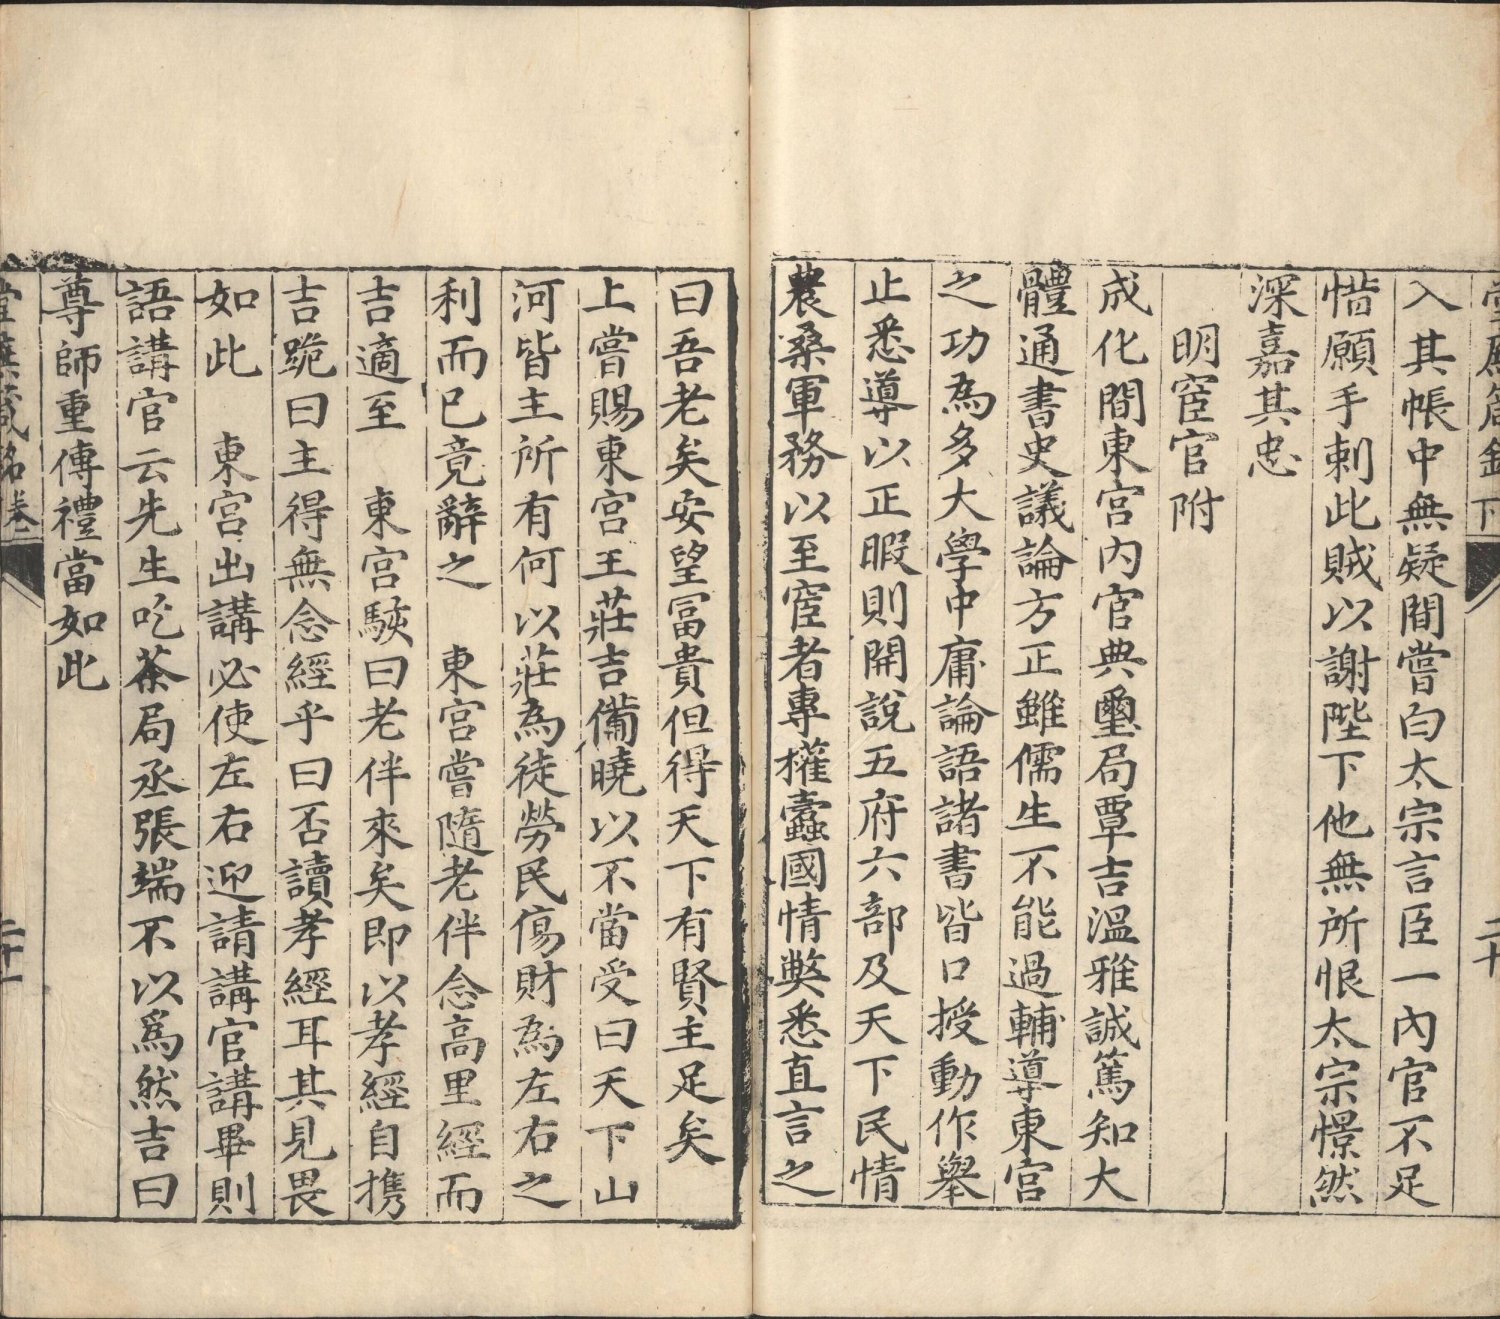 入其帳中無疑間嘗白太宗言臣一內官不足
惜願手刺此賊以謝陛下他無所恨太宗憬然
深嘉其忠
明宦官附
成化間東宮內官典璽局覃吉溫雅誠篤知大
體通書史議論方正雖儒生不能過輔導東宮
之功為多大學中庸論語諸書皆口授動作舉
止悉導以正暇則開說五府六部及天下民情
農桑軍務以至宦者專權蠹國情弊悉直言之
曰吾老矣安望富貴但得天下有賢主足矣
上嘗賜東宮王莊吉備曉以不當受曰天下山
河皆主所有何以莊為徒勞民傷財為左右之
利而已竟辭之 東宮嘗隨老伴念高里經而
吉適至 東宮駭曰老伴來矣即以孝經自携
吉跪曰主得無念經乎曰否讀孝經耳其見畏
如此 東宮出講必使左右迎請講官講畢則
語講官云先生吃茶局丞張端不以爲然吉曰
尊師重傅禮當如此